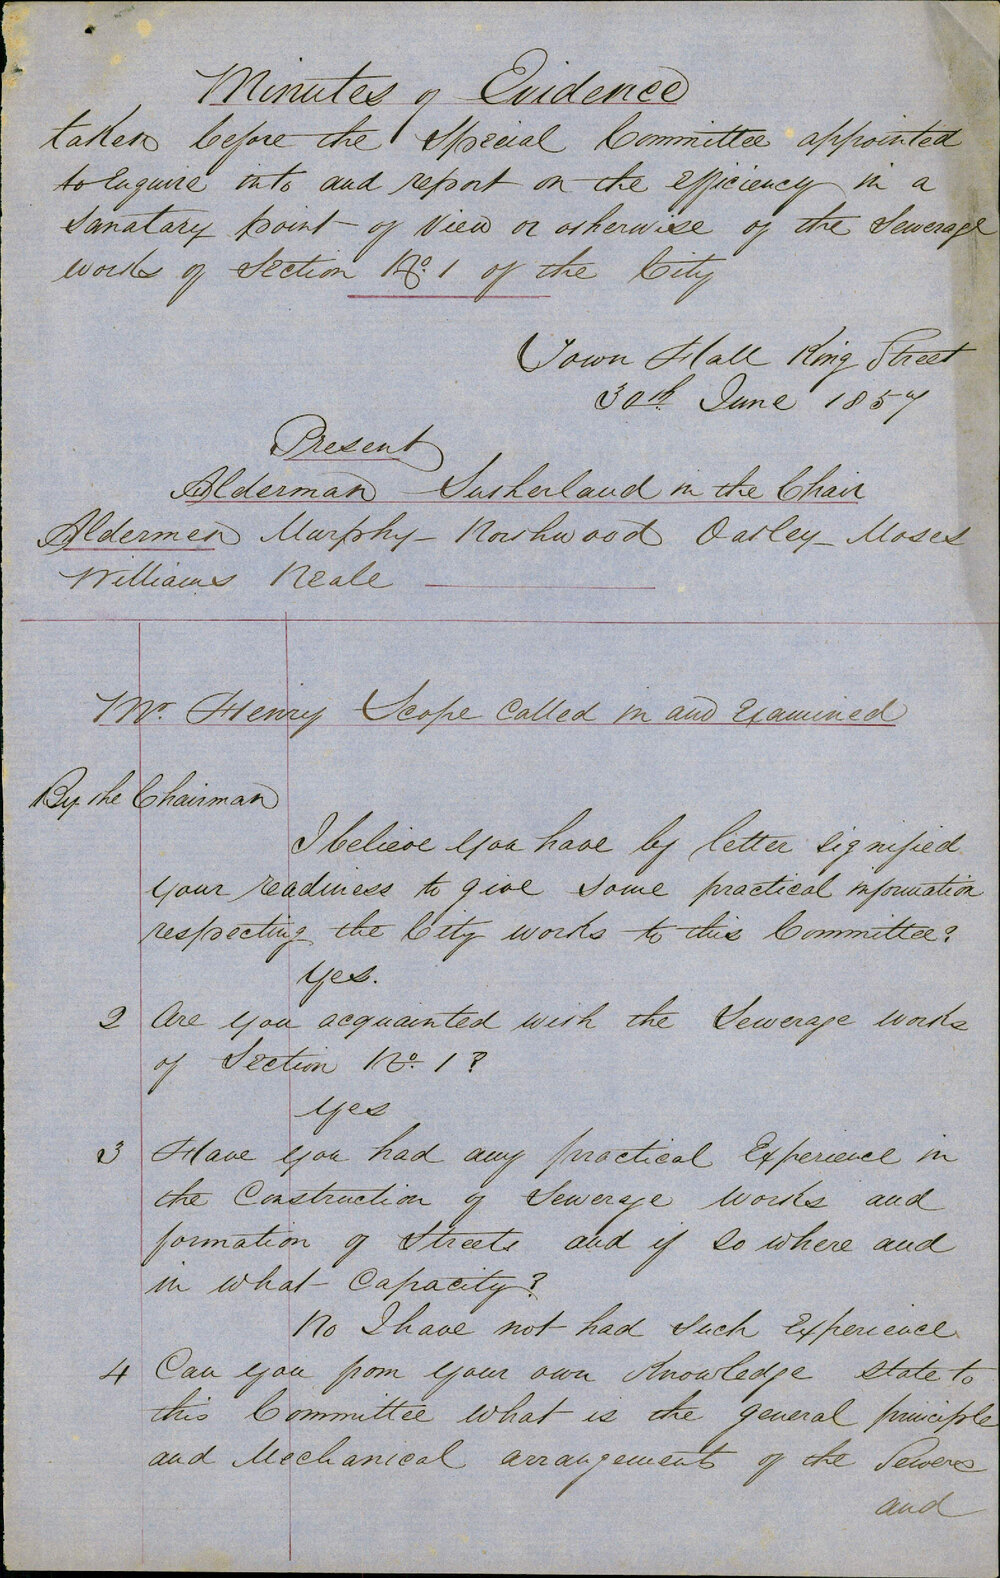 Minutes of Evidence
taken before the Special Committee appointed
to Enquire into and report on the efficiency in a
Sanatary point of View or otherwise of the Sewerage
works of Section No. 1 of the City
Town Hall King Street
30th June 1857
Present
Alderman Sutherland in the Chair
Aldermen Murphy - Northwood Oatley - Moses
Williams Neale
Mr. Henry Scope Called in and Examined
By the Chairman
I believe you have by letter signified
your readiness to give some practical information
respecting the City works to this Committee?
Yes.
2 Are you acquainted with the Sewerage works
of Section No. 1?
Yes
3 Have you had any practical Experience in
the Construction of Sewerage works and
formation of Streets and if so where and
in what Capacity?
No I have not had such Experience
4 Can you from your own Knowledge state to
this Committee what is the general principle
and Mechanical arrangements of the Sewers
and